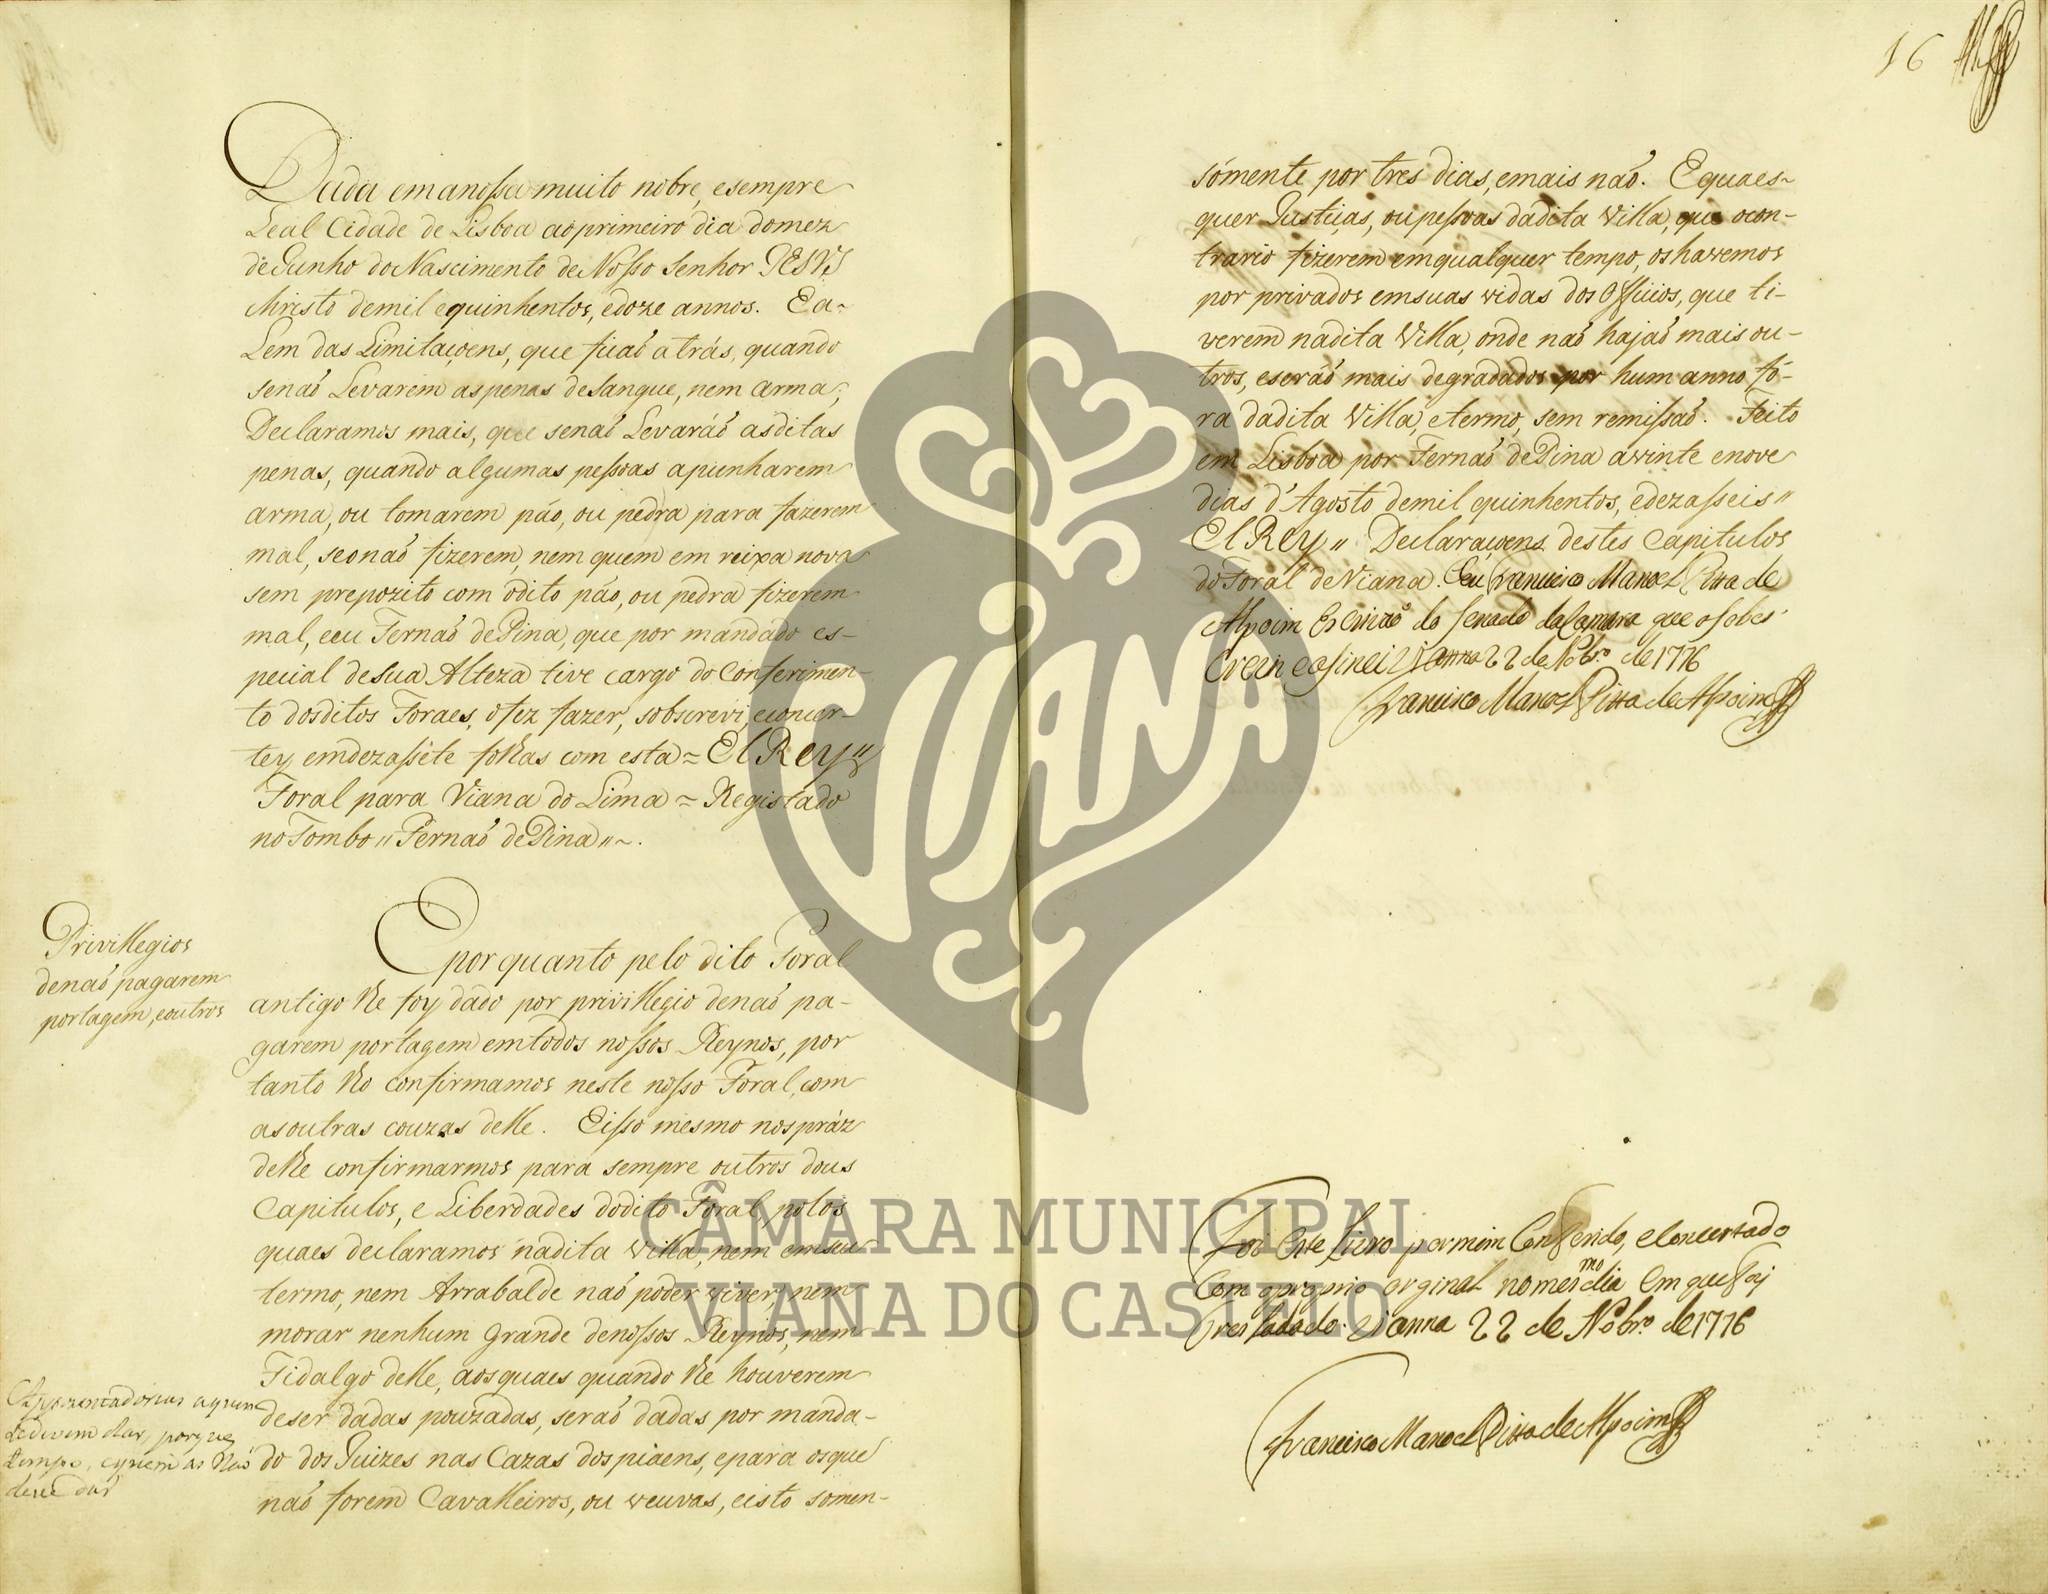 Dada em a nossa muito nobre, e sempre
Leal Cidade de Lisboa ao primeiro dia do mez
de Junho do Nascimento de Nosso Senhor JESVS
Christo de mil e quinhentos, e doze annos. E a-
Lem das Limitaçoens, que ficaõ atrás, quando
se naõ Levarem as penas de sangue, nem arma,
Declaramos mais, que se naõ Levaráõ as ditas
penas, quando algumas pessoas apunharem
arma, ou tomarem páo, ou pedra para fazerem
mal, se o naõ fizerem, nem quem em reixa nova
sem prepozito com o dito páo, ou pedra fizerem
mal, e eu Fernaõ de Pina, que por mandado es-
pecial de sua Alteza tive cargo do Conferimen-
to dos ditos Foraes, o fez fazer, sobscrevi, e concer-
tey em dezassete folhas com esta = El Rey "
Foral para Viana do Lima = Registado
no Tombo " Fernaõ de Pina " ~.
Privilhegios
de naõ pagarem
portagem, e outros
E por quanto pelo dito Foral
antigo lhe foy dado por privilhegio de naõ pa-
garem portagem em todos nossos Reynos, por
tanto lho confirmamos neste nosso Foral, com
as outras couzas delle. E isso mesmo nos práz
delhe confirmarmos para sempre outros dous
Capitulos, e Liberdades do dito Foral, polos
quaes declaramos na dita Villa, nem em seu
termo, nem Arrabalde naõ poder viver, nem
morar nenhum grande de nossos Reynos, nem
Fidalgo delle, aos quaes quando lhe houverem
de ser dadas pouzadas, seraõ dadas por manda-
do dos Juizes nas Cazas dos piaens, e para os que
naõ forem Cavalleiros, ou veuvas, e isto somen-
Appozentadorias a quem
se devem dar, por que
tempo, e quem as naõ
deve dar
16
sómente por tres dias, e mais naõ. E quaes-
quer Justiças, ou pessoas da dita Villa, que o con-
trario fizerem em qualquer tempo, os havemos
por privados em suas vidas dos Officios, que ti-
verem na dita Villa, onde naõ hajaõ mais ou-
tros, e seráõ mais degradados por hum anno fó-
ra da dita Villa, e termo, sem remissaõ. Feito
em Lisboa por Fernaõ de Pina a vinte e nove
dias d'Agosto de mil quinhentos, e dezasseis "
El Rey " Declaraçoens destes Capitulos
do Foral de Viana. E eu Francisco Manoel Pitta de
Alpoim Escrivaõ do Senado da Camara que o sobes
crevi e asinei Vianna 22 de Nobr.o de 1776
Francisco Manoel Pitta de Alpoim
Foi este Livro por mim Conferido, e Concertado
Com o proprio orginal no mesmo dia em que foi
Tresladado. Vianna 22 de Nobr.o de 1776
Francisco Manoel Pitta de Alpoim
VIANA
CÂMARA MUNICIPAL
VIANA DO CASTELO